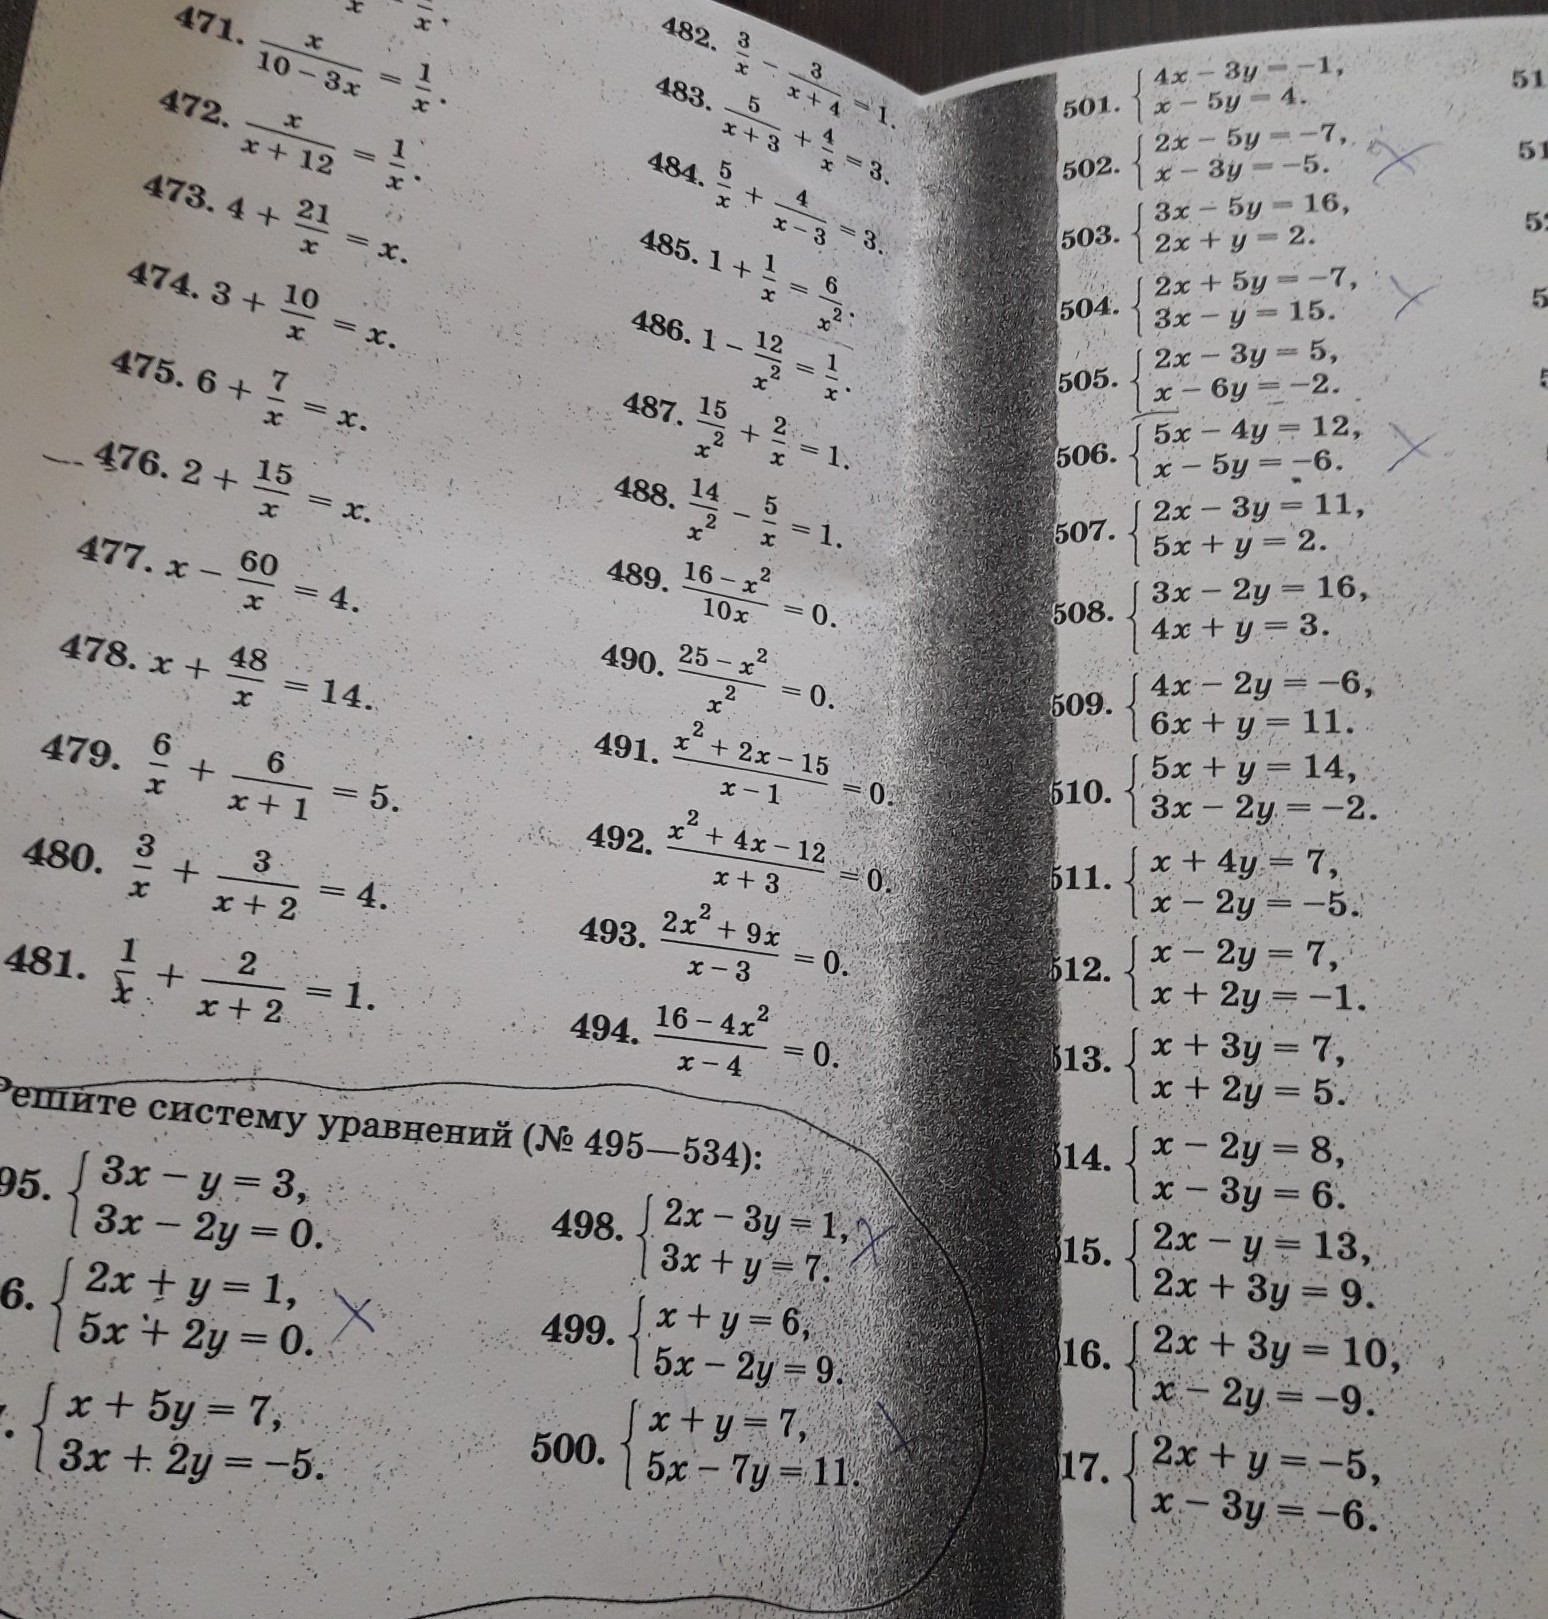 471. x/(10 − 3x) = 1/x.
472. x/(x + 12) = 1/x.
473. 4 + 21/x = x.
474. 3 + 10/x = x.
475. 6 + 7/x = x.
476. 2 + 15/x = x.
477. x − 60/x = 4.
478. x + 48/x = 14.
479. 6/x + 6/(x + 1) = 5.
480. 3/x + 3/(x + 2) = 4.
481. 1/x + 2/(x + 2) = 1.
482. 3/x − 3/(x + 4) = 1.
483. 5/(x + 3) + 4/x = 3.
484. 5/x + 4/(x − 3) = 3.
485. 1 + 1/x = 6/x².
486. 1 − 12/x² = 1/x.
487. 15/x² + 2/x = 1.
488. 14/x² − 5/x = 1.
489. (16 − x²)/(10x) = 0.
490. (25 − x²)/x² = 0.
491. (x² + 2x − 15)/(x − 1) = 0.
492. (x² + 4x − 12)/(x + 3) = 0.
493. (2x² + 9x)/(x − 3) = 0.
494. (16 − 4x²)/(x − 4) = 0.
Решите систему уравнений (№ 495—534):
95. { 3x − y = 3,
3x − 2y = 0.
6. { 2x + y = 1,
5x + 2y = 0.
. { x + 5y = 7,
3x + 2y = −5.
498. { 2x − 3y = 1,
3x + y = 7.
499. { x + y = 6,
5x − 2y = 9.
500. { x + y = 7,
5x − 7y = 11.
501. { 4x − 3y = −1,
x − 5y = 4.
502. { 2x − 5y = −7,
x − 3y = −5.
503. { 3x − 5y = 16,
2x + y = 2.
504. { 2x + 5y = −7,
3x − y = 15.
505. { 2x − 3y = 5,
x − 6y = −2.
506. { 5x − 4y = 12,
x − 5y = −6.
507. { 2x − 3y = 11,
5x + y = 2.
508. { 3x − 2y = 16,
4x + y = 3.
509. { 4x − 2y = −6,
6x + y = 11.
510. { 5x + y = 14,
3x − 2y = −2.
511. { x + 4y = 7,
x − 2y = −5.
512. { x − 2y = 7,
x + 2y = −1.
513. { x + 3y = 7,
x + 2y = 5.
514. { x − 2y = 8,
x − 3y = 6.
515. { 2x − y = 13,
2x + 3y = 9.
16. { 2x + 3y = 10,
x − 2y = −9.
17. { 2x + y = −5,
x − 3y = −6.
51
51